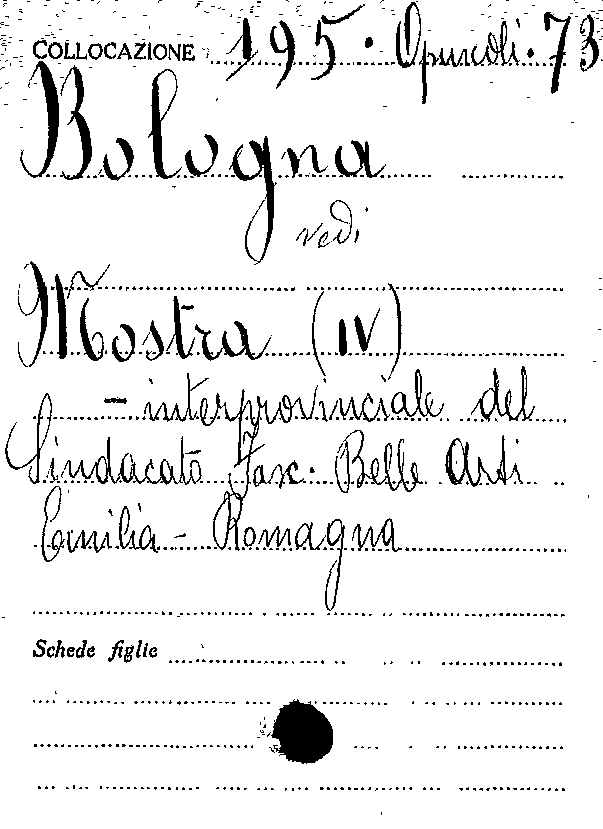 COLLOCAZIONE 195. Opuscoli. 73
Bologna
vedi
Mostra (IV)
- interprovinciale del
Sindacato Fasc. Belle Arti
Emilia - Romagna
Schede figlie